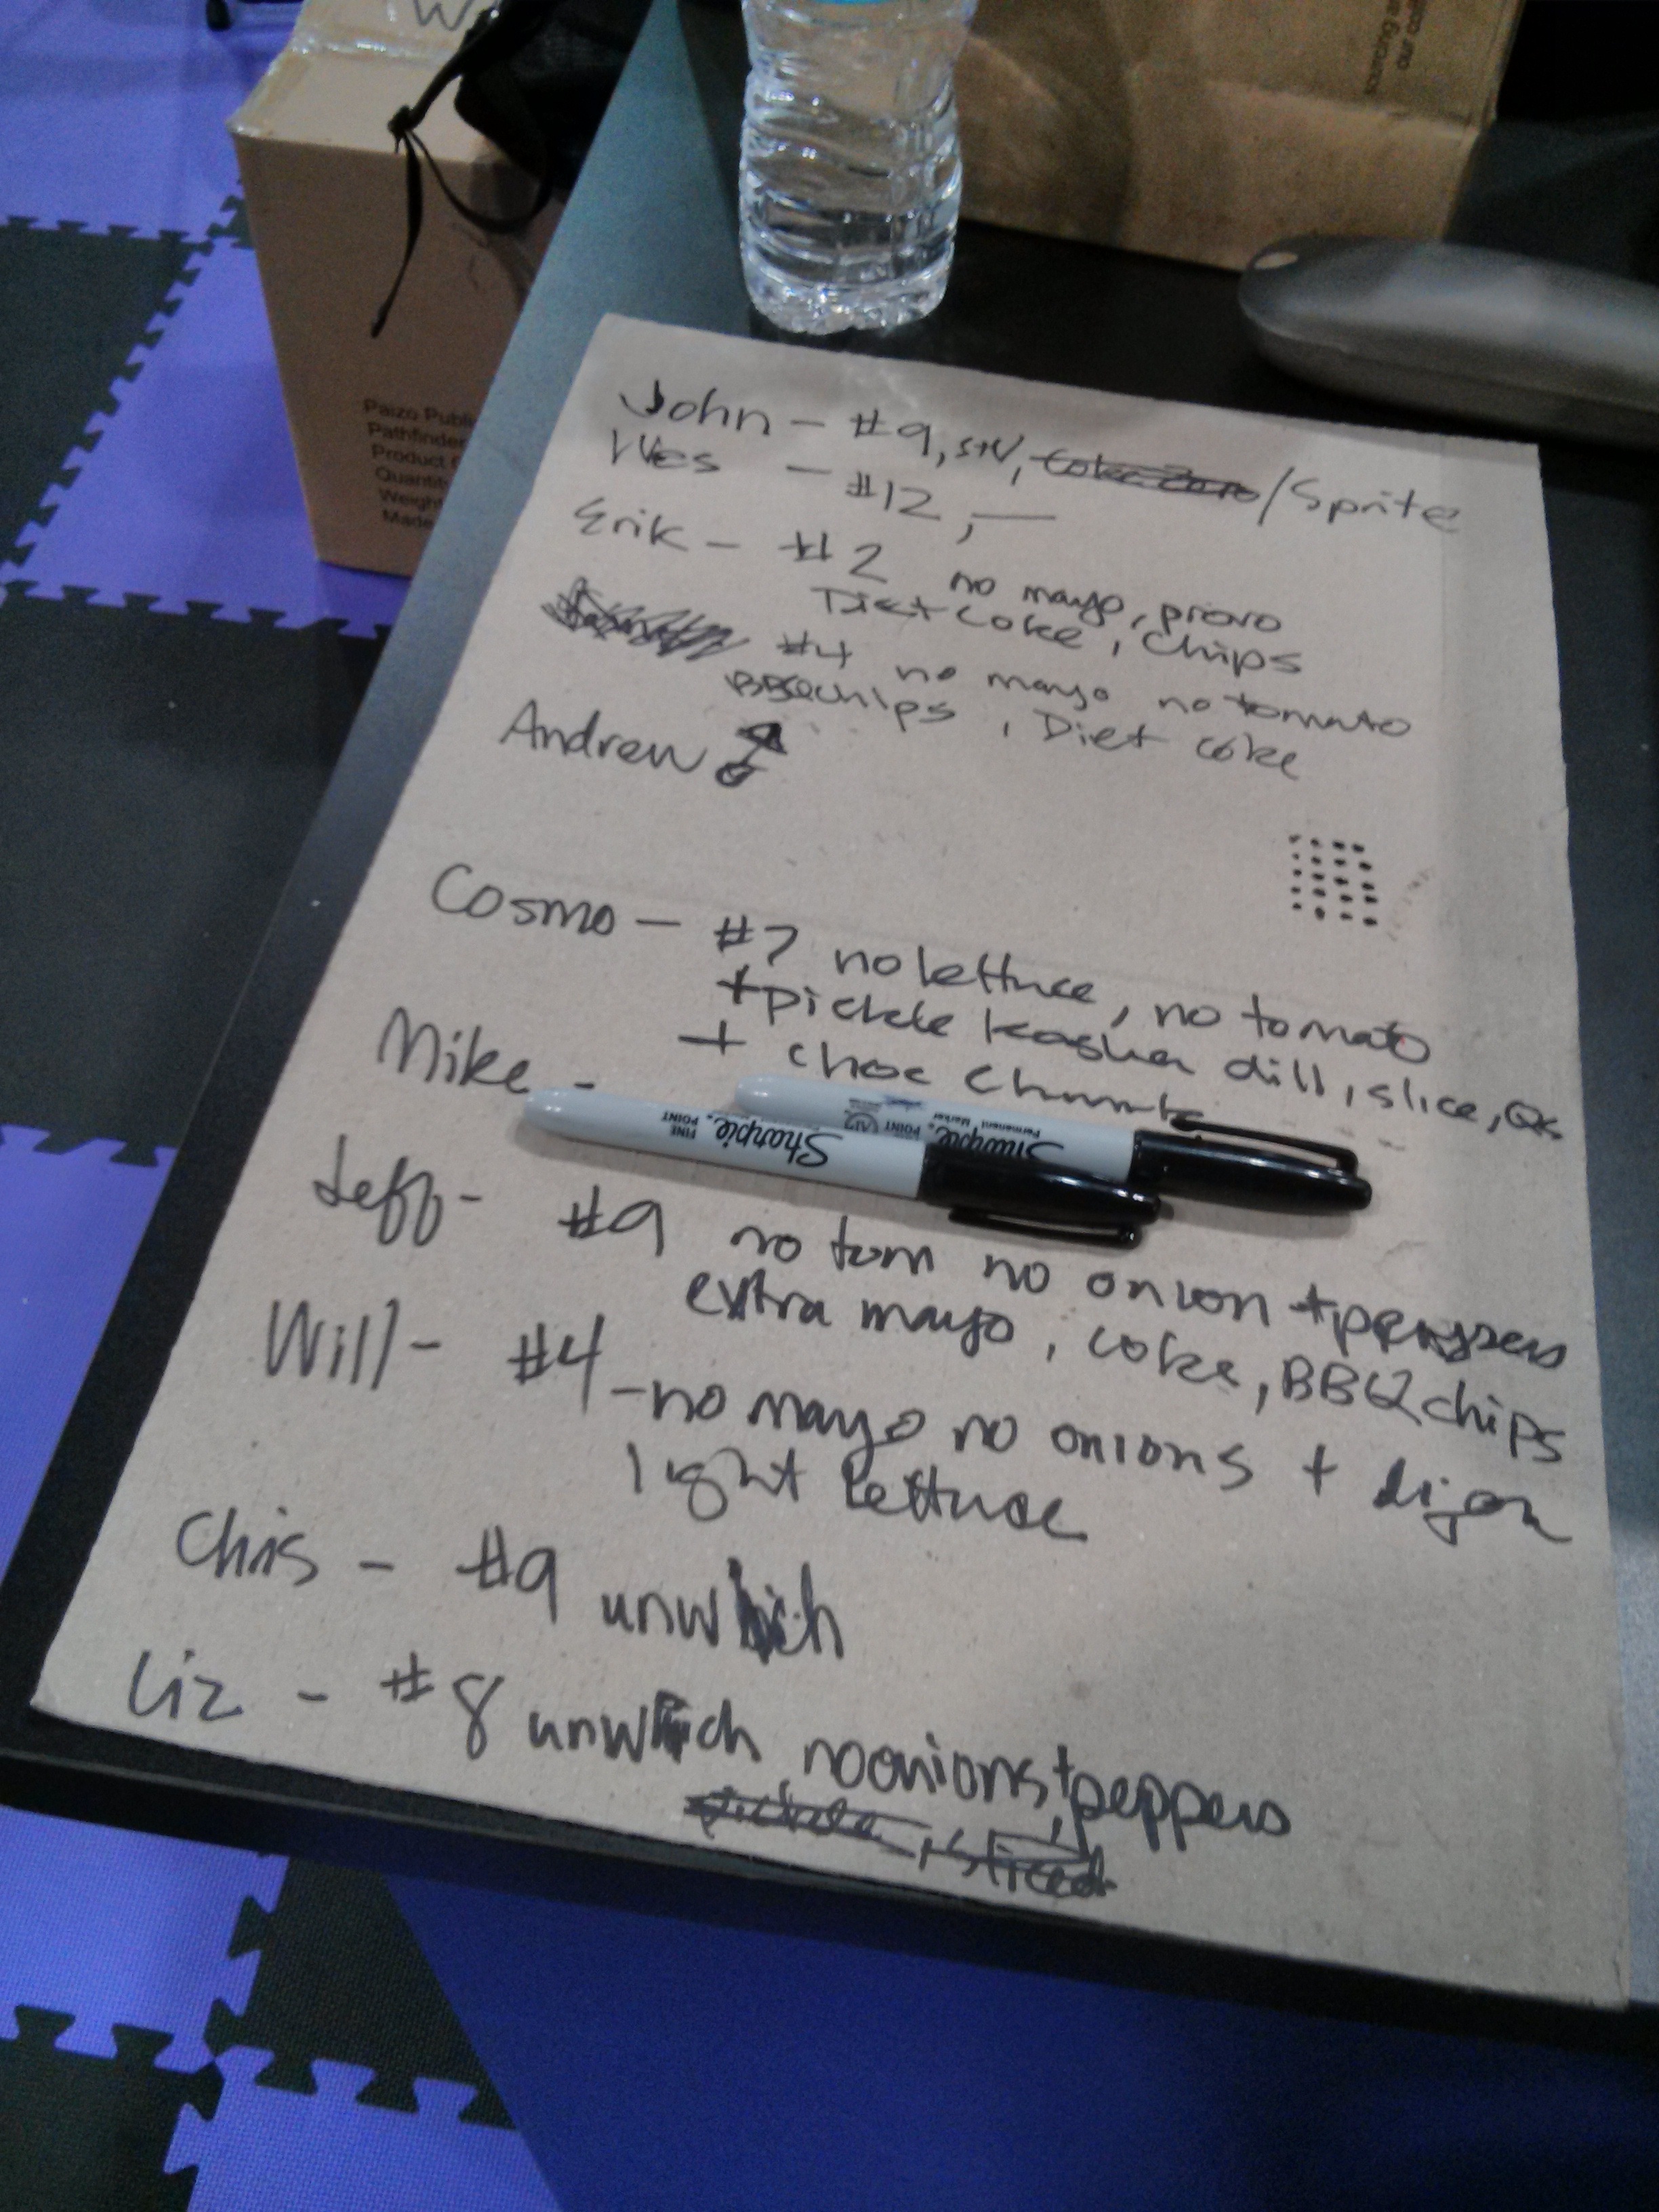 our co
sourcing a
W
Paizo Publi
Pathfinder
Product
Quantit
Weight
Made
John - #9, S+V, Coke Zero / Sprite
Wes - #12, —
Erik - #2 no mayo, provo
Diet Coke, Chips
#4 no mayo no tomato
BBQ chips, Diet Coke
Andrew
Cosmo - #7 no lettuce, no tomato
+ pickle kosher dill, slice,
+ choc chunk
Mike -
Sharpie FINE POINT
Sharpie Permanent Marker POINT
Jeff - #9 no tom no onion + peppers
extra mayo, coke, BBQ chips
Will - #4 - no mayo no onions + dijon
light lettuce
Chris - #9 unwich
Liz - #8 unwich no onions + peppers
pickle, sliced